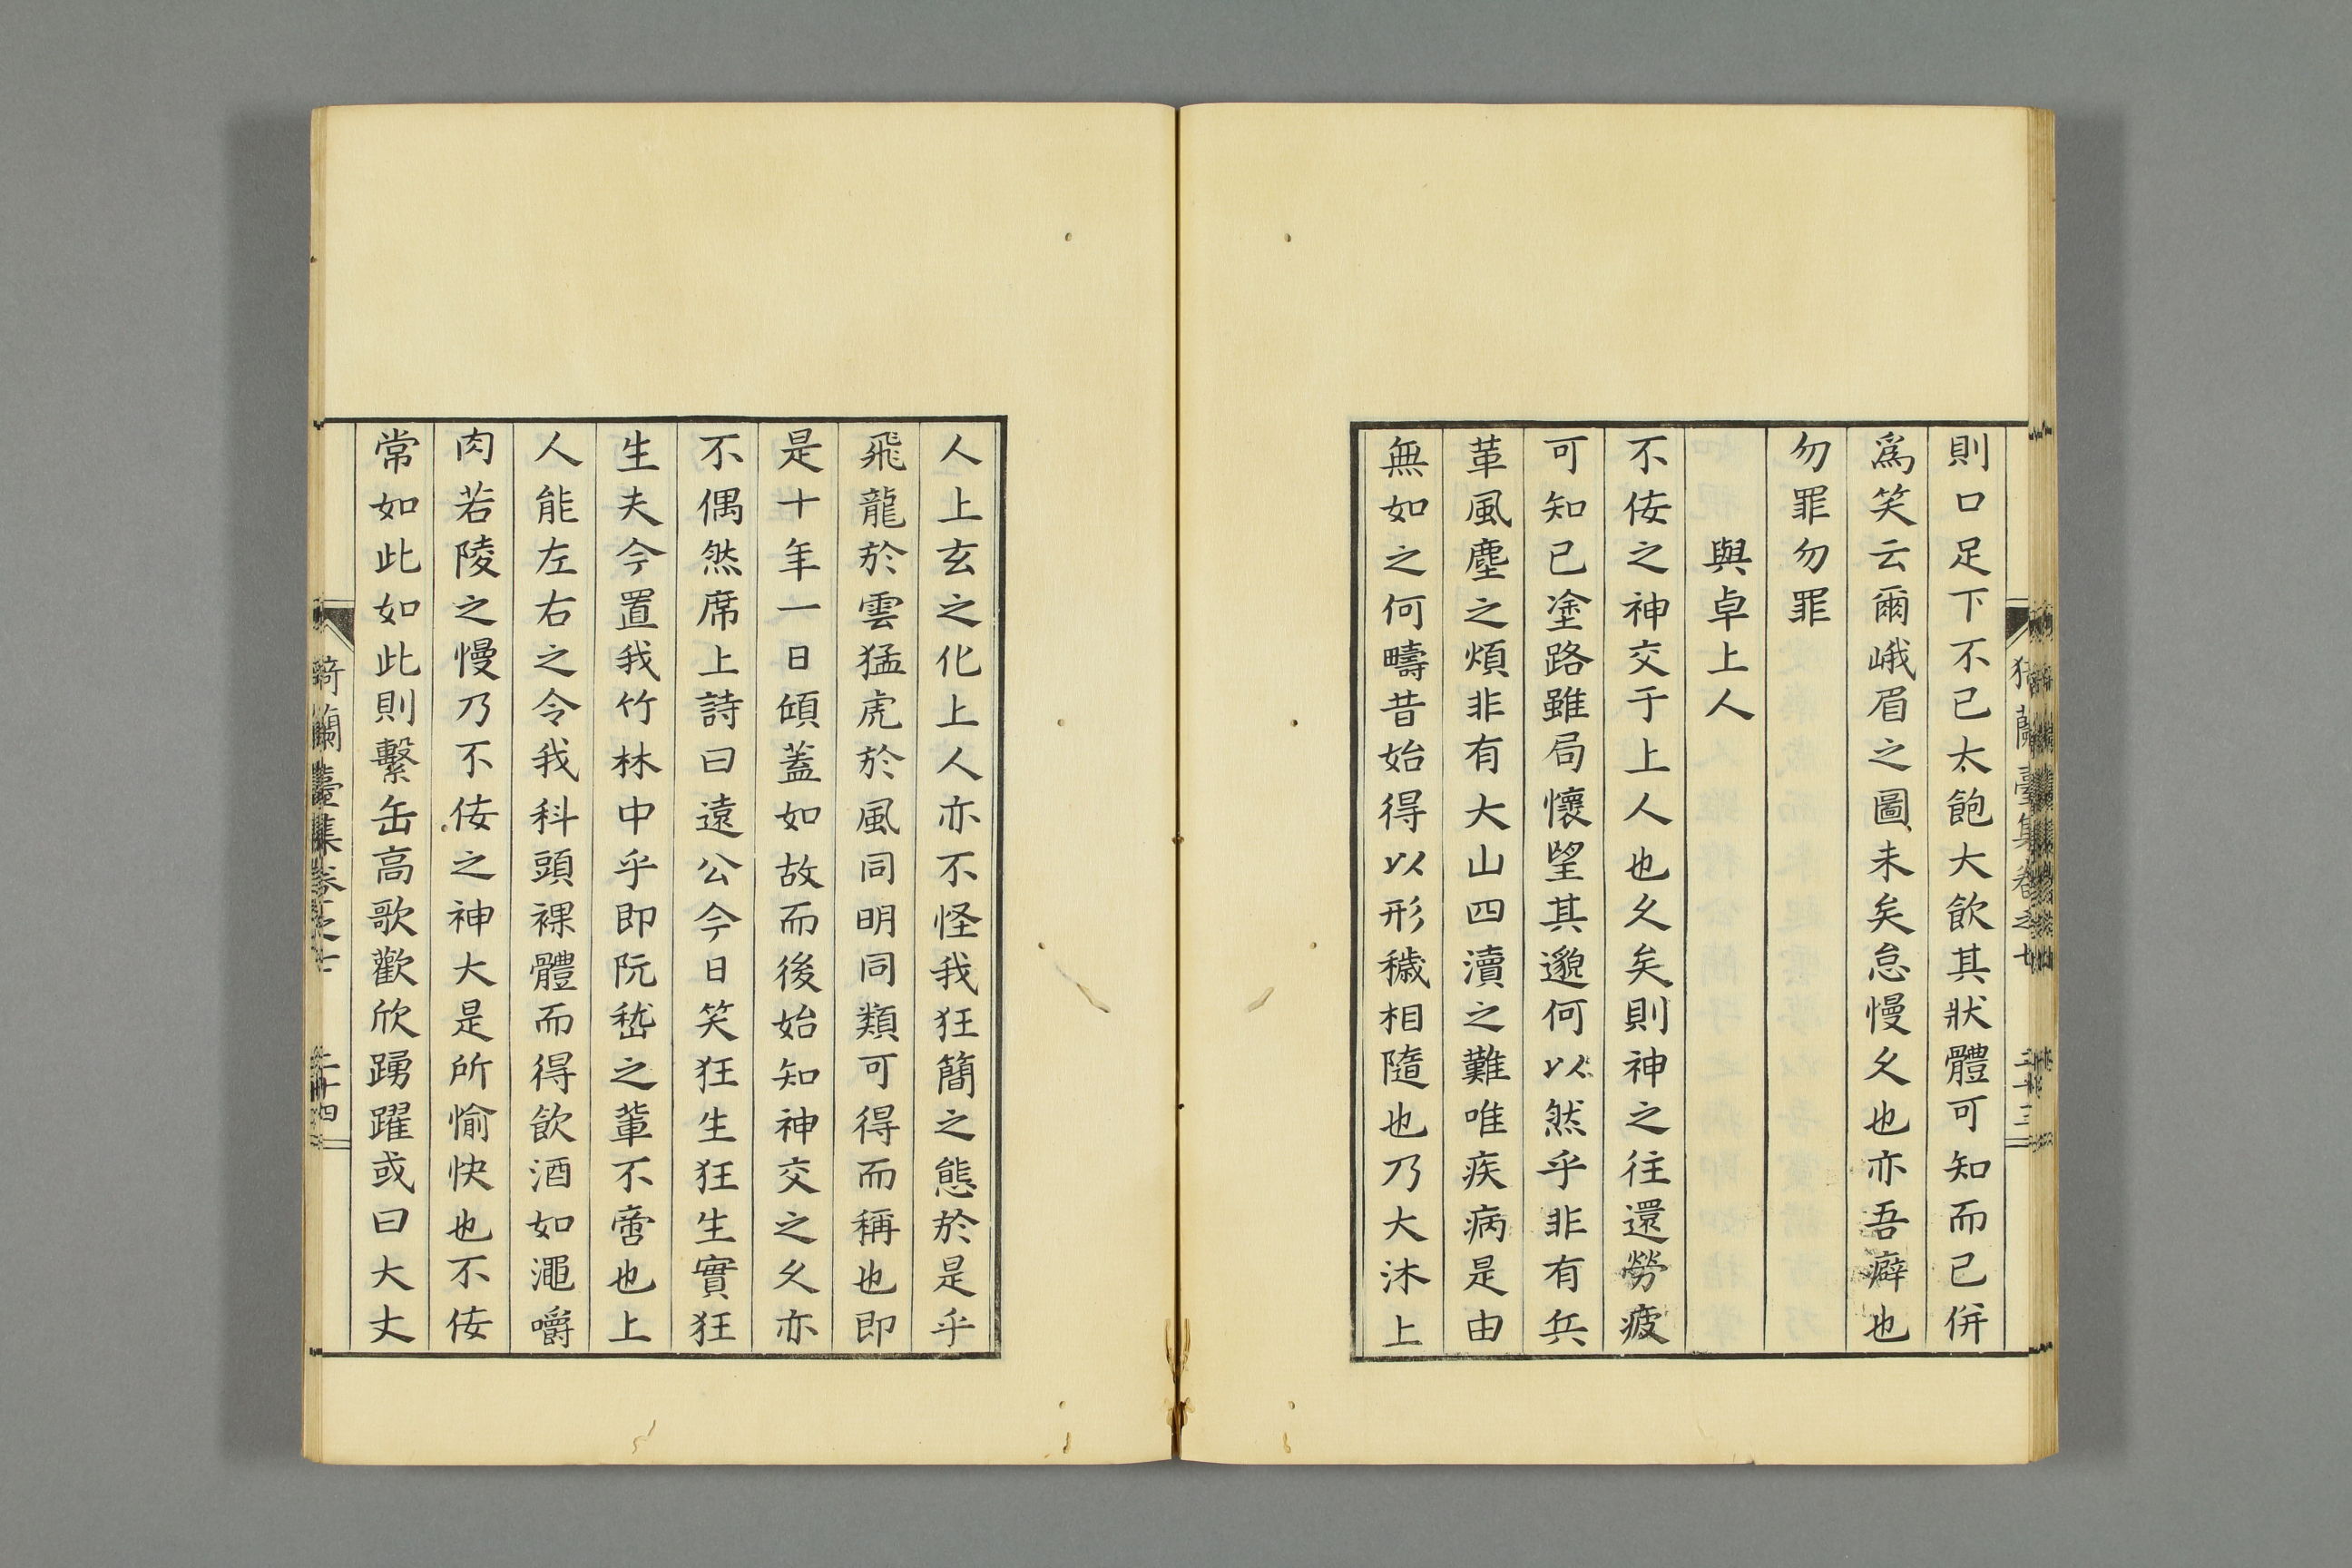 則口足下不已太飽大飲其狀體可知而已併
爲笑云爾峨眉之圖未矣怠慢久也亦吾癖也
勿罪勿罪
與卓上人
不佞之神交于上人也久矣則神之往還勞疲
可知已塗路雖局懷望其邈何以然乎非有兵
革風塵之煩非有大山四瀆之難唯疾病是由
無如之何疇昔始得以形穢相隨也乃大沐上
人上玄之化上人亦不怪我狂簡之態於是乎
飛龍於雲猛虎於風同明同類可得而稱也即
是十年一日傾蓋如故而後始知神交之久亦
不偶然席上詩曰遠公今日笑狂生狂生實狂
生夫今置我竹林中乎即阮嵇之輩不啻也上
人能左右之令我科頭裸體而得飲酒如澠嚼
肉若陵之慢乃不佞之神大是所愉快也不佞
常如此如此則繫缶高歌歡欣踴躍或曰大丈
蘭臺集卷之七 二十四